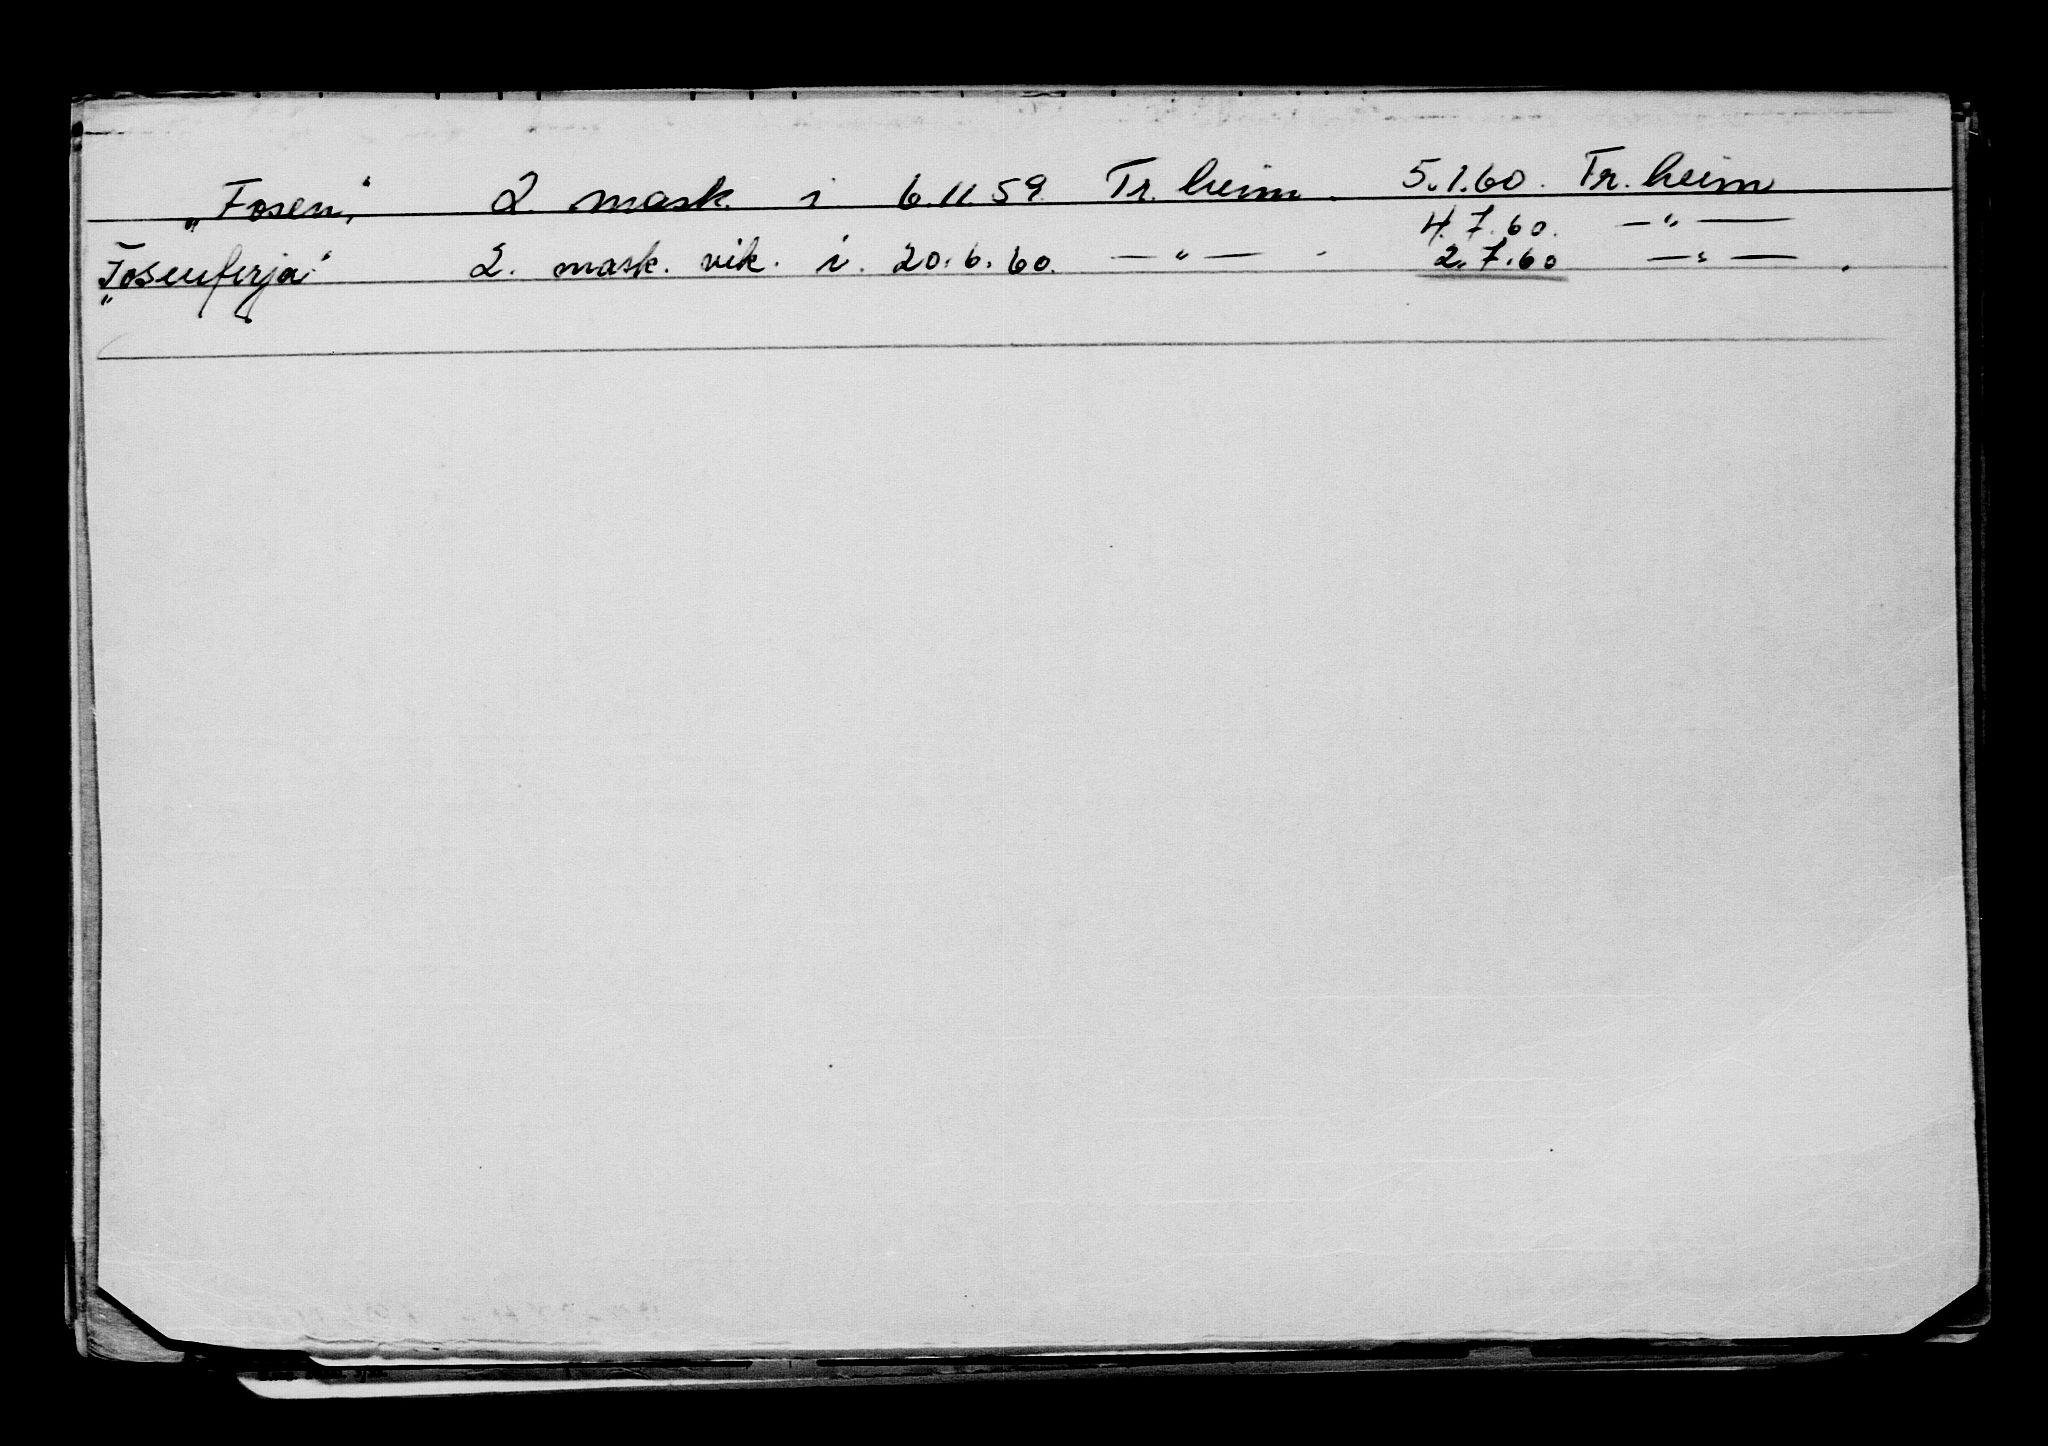 „Fosen" 2. mask. i 6.11.59. Tr.heim. 5.1.60. Tr.heim
4.7.60. —"—
„Fosenferja" 2. mask. vik. i. 20.6.60. —"— 2.7.60 —"— .